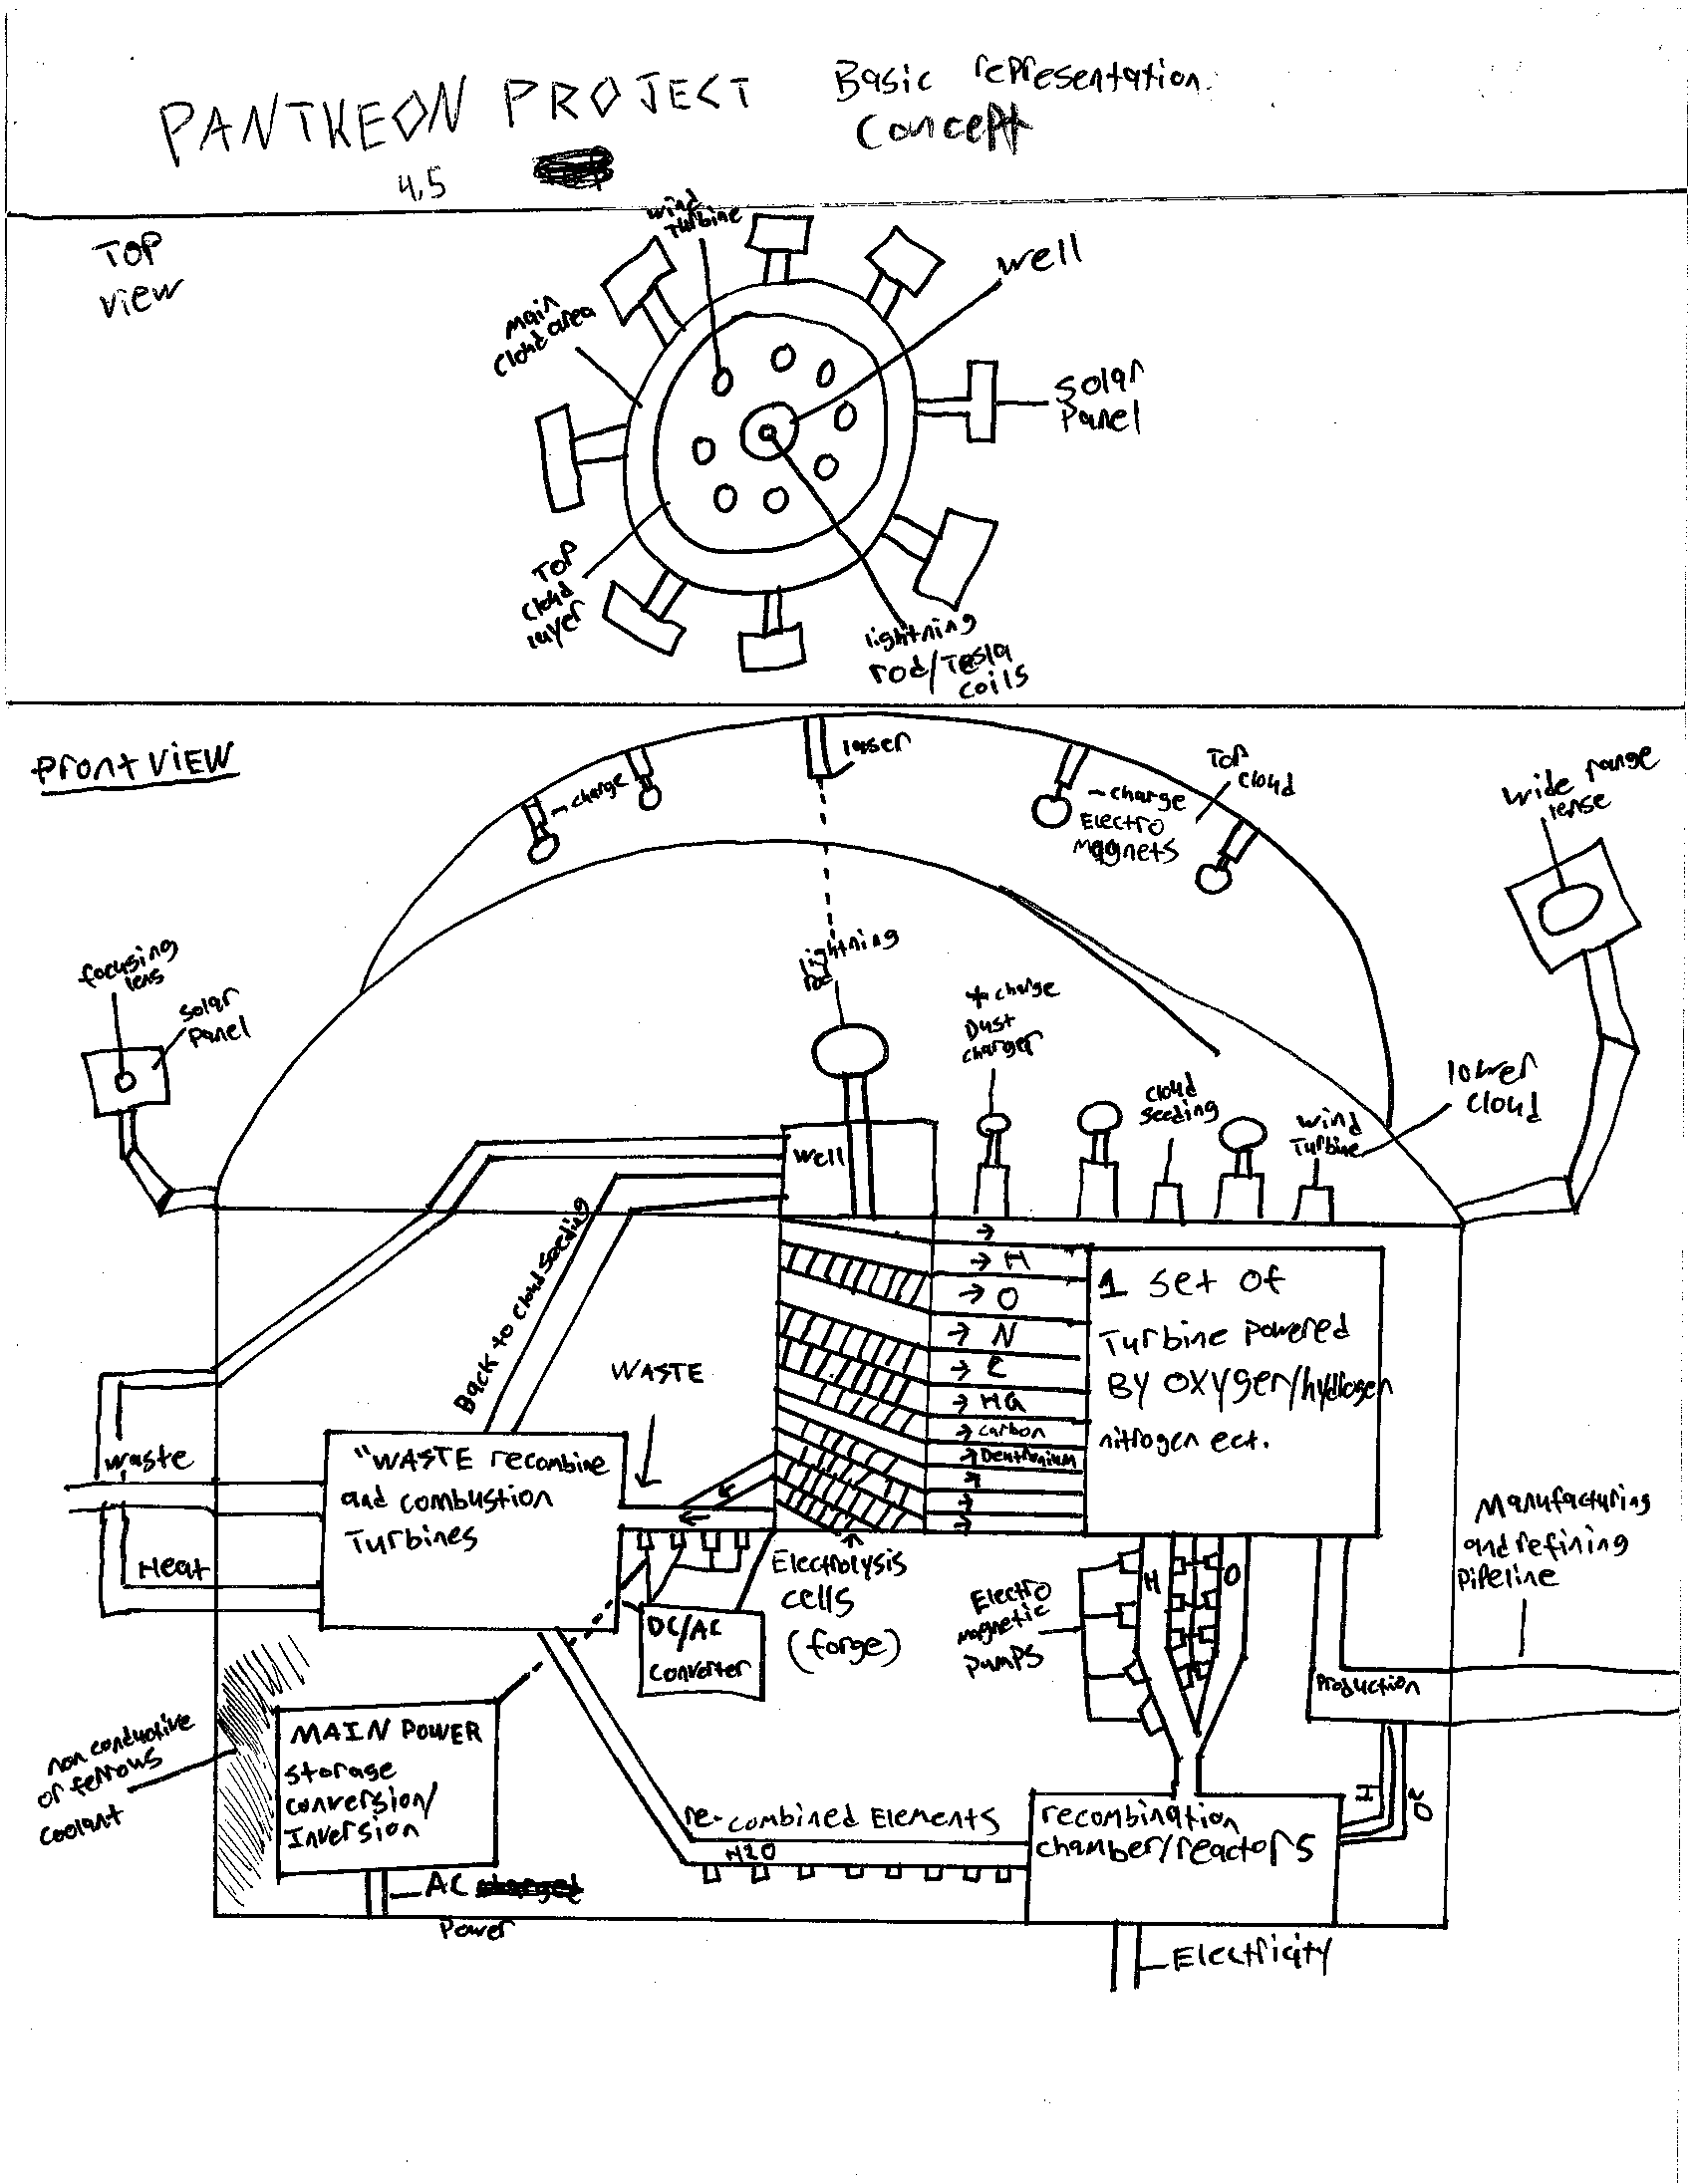 PANTHEON PROJECT
Basic representation
Concept
4.5
TOP
View
wind
turbine
well
main
cloud area
Solar
Panel
TOP
cloud
layer
lightning
rod/Tesla
coils
Front VIEW
laser
charge
charge
Electro
Magnets
Top
cloud
wide range
lense
focusing
lens
solar
panel
lightning
charge
Dust
charger
cloud
seeding
wind
Turbine
lower
cloud
well
Back to cloud seeding
WASTE
H
O
N
HG
carbon
1 set of
Turbine powered
BY oxygen/hydrogen
nitrogen ect.
waste
Heat
"WASTE recombine
and combustion
Turbines
Electrolysis
cells
(forge)
DC/AC
converter
Electro
magnetic
pumps
H
O
Manufacturing
and refining
Pipeline
Production
non conductive
or ferrows
coolant
MAIN POWER
storage
conversion/
Inversion
AC
Power
re-combined Elements
H2O
recombination
chamber/reactors
H
Electricity